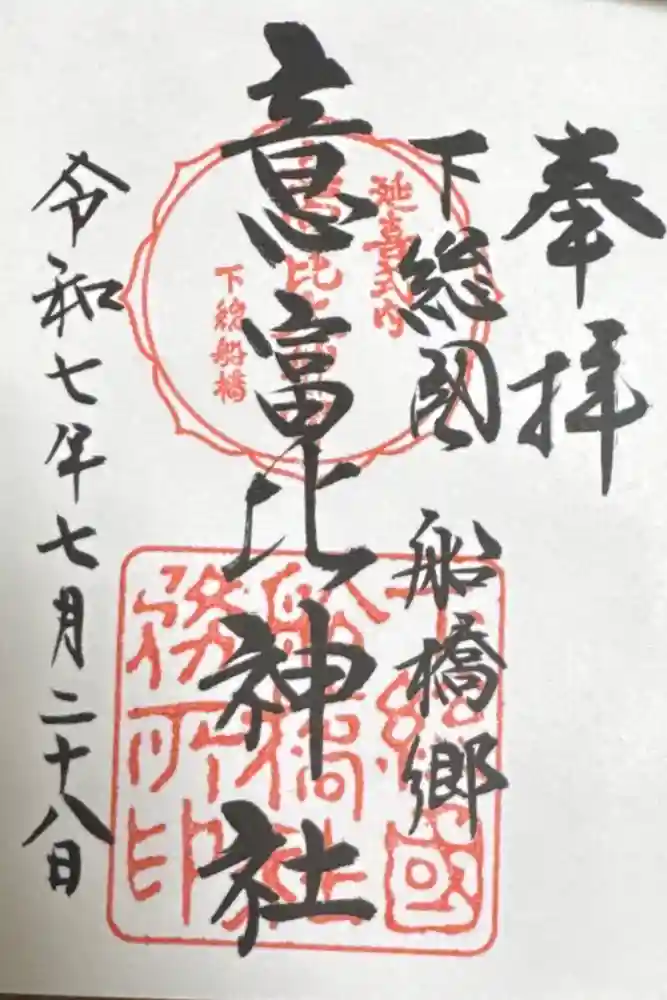 奉拝
下総國 船橋郷
意富比神社
令和七年七月二十八日
延喜式内
下総船橋
下総國
船橋
務所印